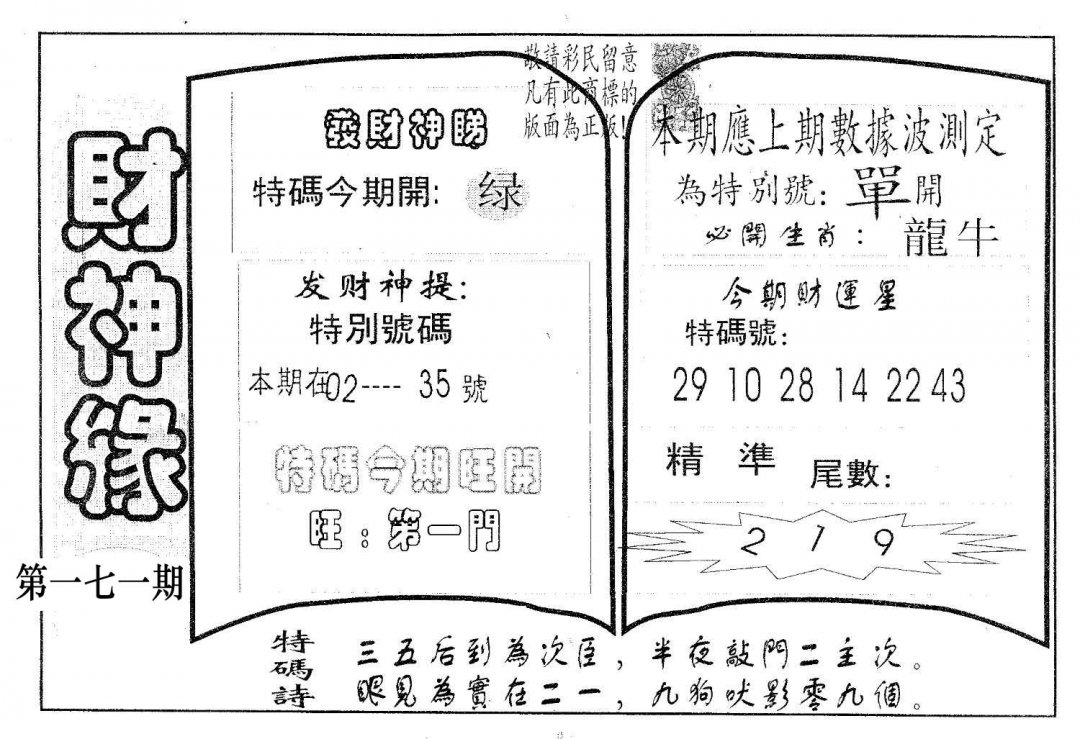 財神緣
第一七一期
敬請彩民留意
凡有此商標的
版面為正版!
發財神睇
特碼今期開: 绿
发财神提:
特別號碼
本期在02---- 35 號
特碼今期旺開
旺:第一門
本期應上期數據波測定
為特別號: 單開
必開生肖: 龍牛
今期財運星
特碼號:
29 10 28 14 22 43
精準 尾數:
2 1 9
特碼詩
三五后到為次臣,半夜敲門二主次。
眼見為實在二一,九狗吠影零九個。